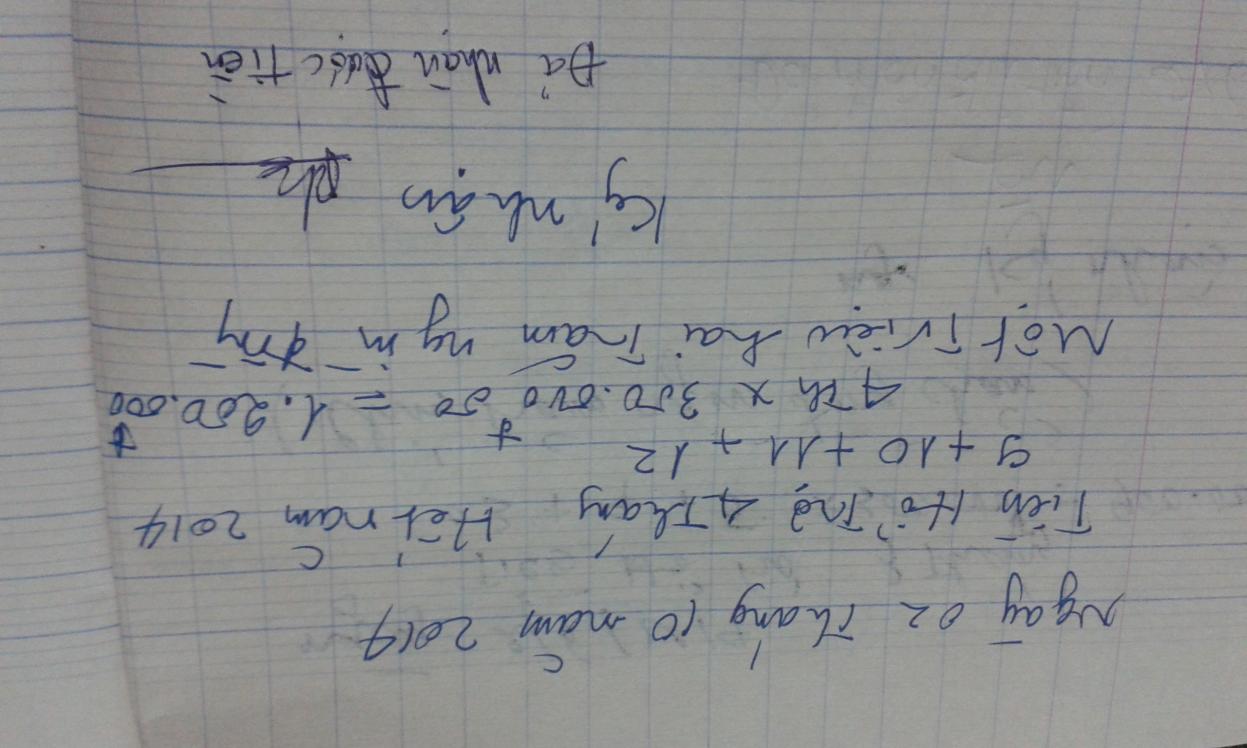 Ngày 02 tháng 10 năm 2014
Tiền Hỗ Trợ 4 tháng Hết năm 2014
9 + 10 + 11 + 12
4 th x 300.000 đ = 1.200.000 đ
Một Triệu hai Trăm ngìn
Ký nhận
Đã nhận được tiền